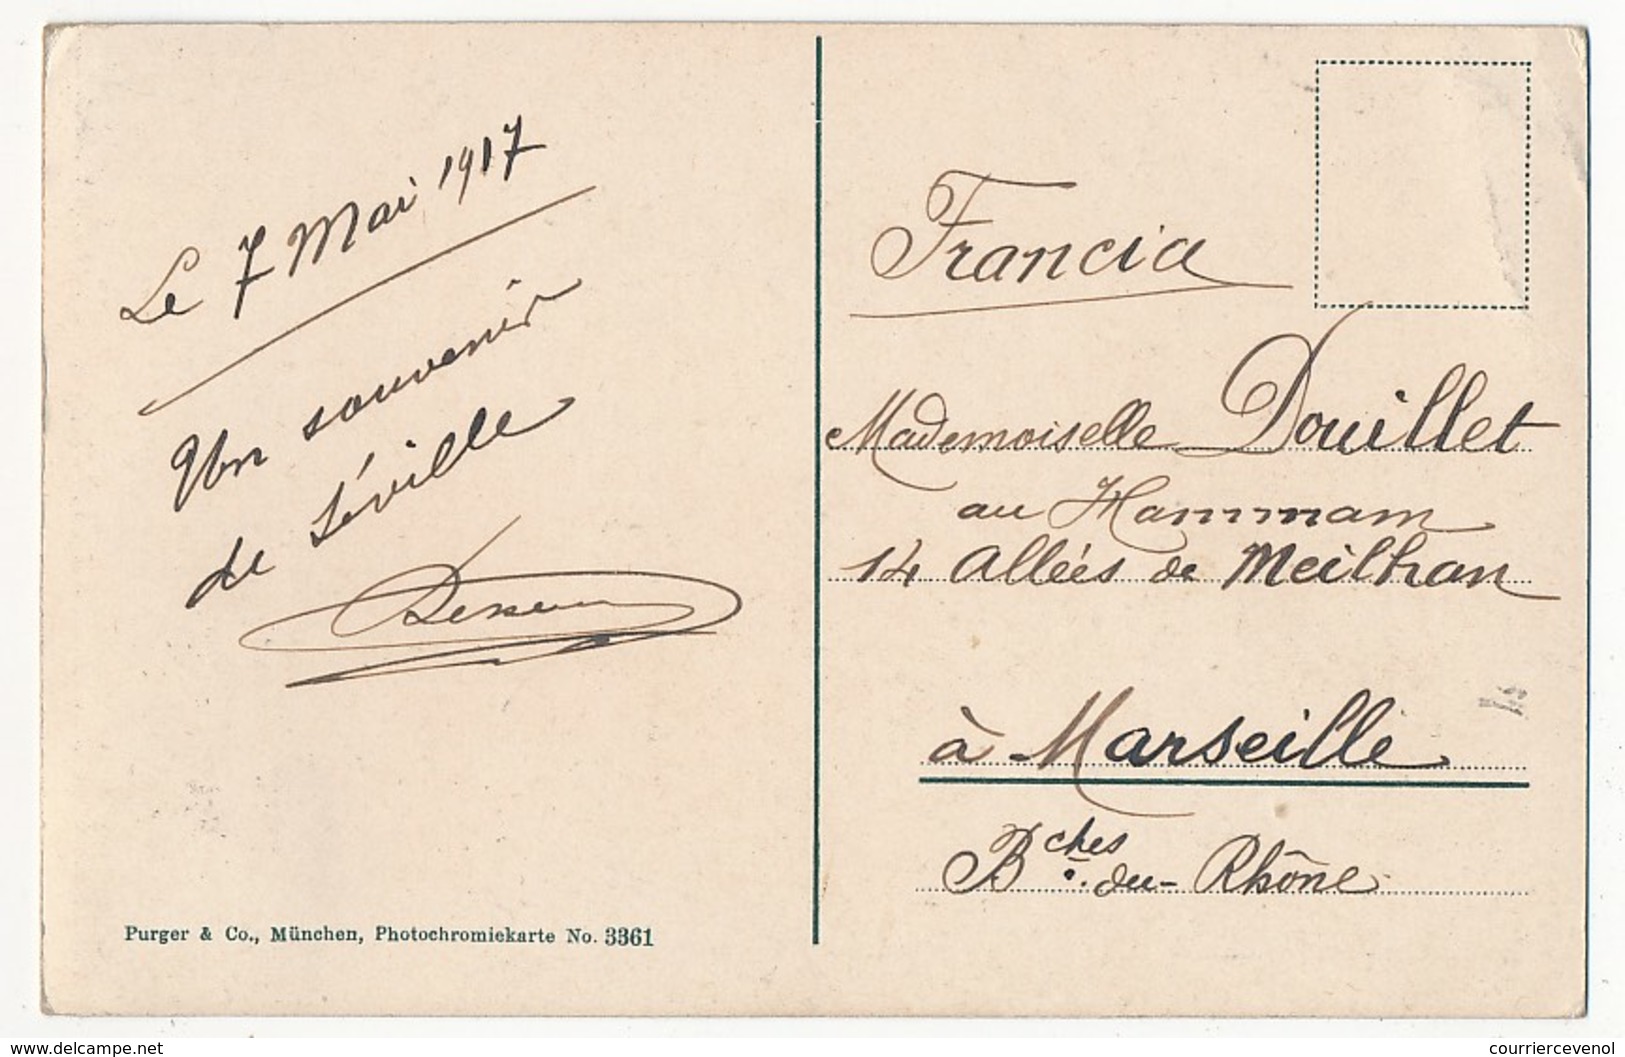 Le 7 Mai 1917
Un souvenir
de Séville
Francia
Mademoiselle Douillet
au Hammam
14 Allées de Meilhan
à Marseille
Bches du Rhône
Purger & Co., München, Photochromiekarte No. 3361
www.delcampe.net
courriercevenol